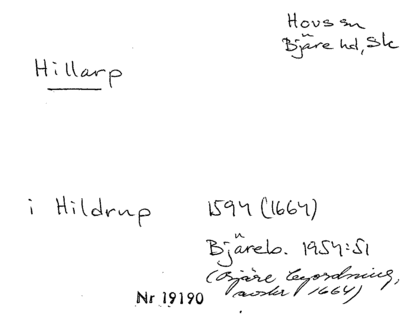 Hovs sn
Bjäre hd, Sk
Hillarp
i Hildrup 1594 (1664)
Bjäreb. 1954:51
(Bjäre byordning,
avskr 1664)
Nr 19190